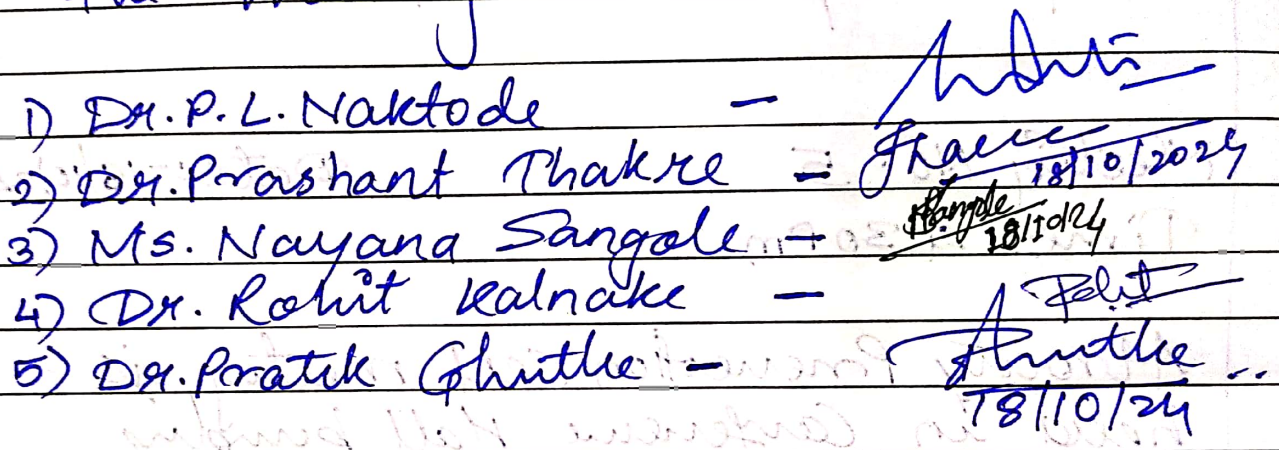 1) Dr. P. L. Naktode -
2) Dr. Prashant Thakre - Thakre 18/10/2024
3) Ms. Nayana Sangole - Sangole 18/10/24
4) Dr. Rohit Kalnake - Rohit
5) Dr. Pratik Ghutke - Ghutke ..
18/10/24